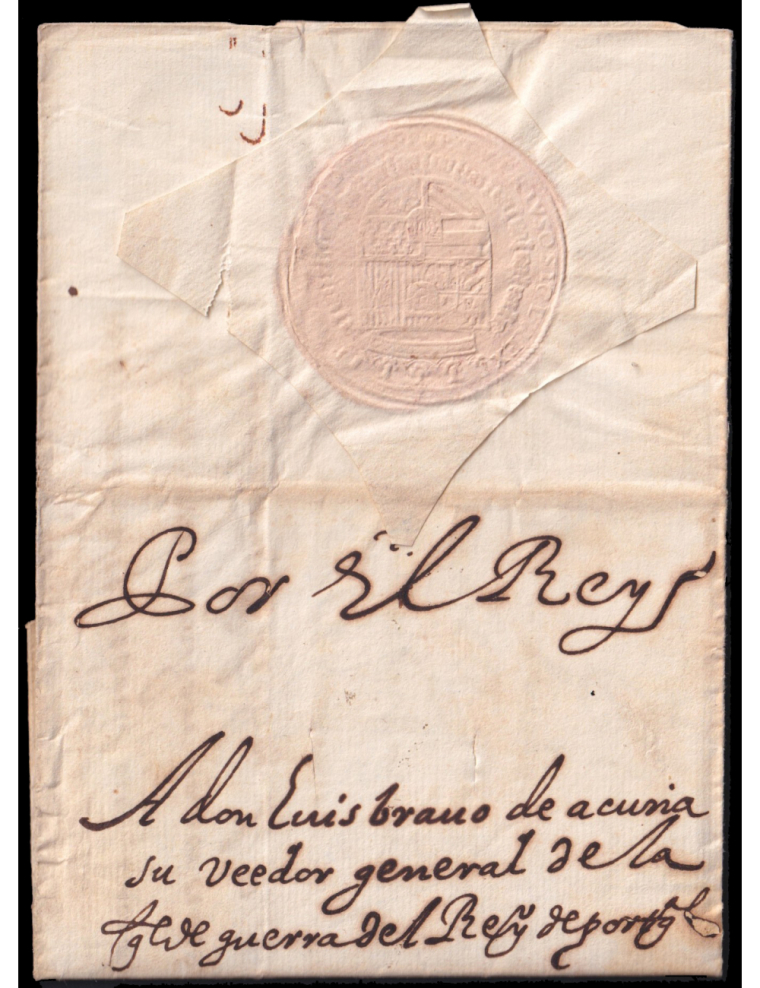 Por El Rey
A don luis brauo de acuña
su veedor general de la
gte de guerra del Reyº de portugl